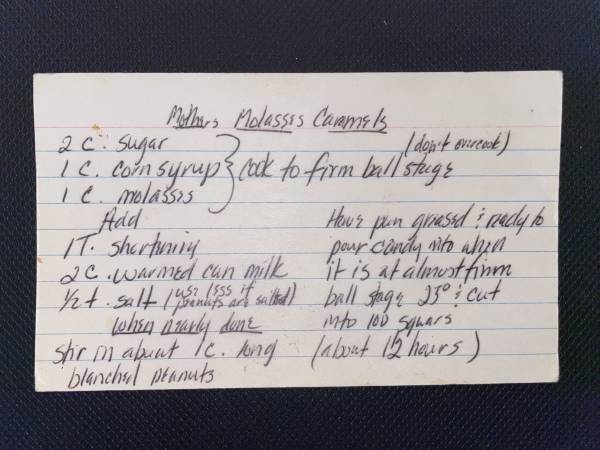 Mothers Molasses Caramels
2 c. sugar
(don't overcook)
1 c. corn syrup } Cook to firm ball stage
1 c. molasses
Add
1 T. shortening
2 c. warmed can milk
1/2 t. salt (use less if peanuts are salted)
when nearly done
stir in about 1 c. long
blanched peanuts
Have pan greased & ready to
pour candy into when
it is at almost firm
ball stage 23° & cut
into 100 squars
(about 12 hours)